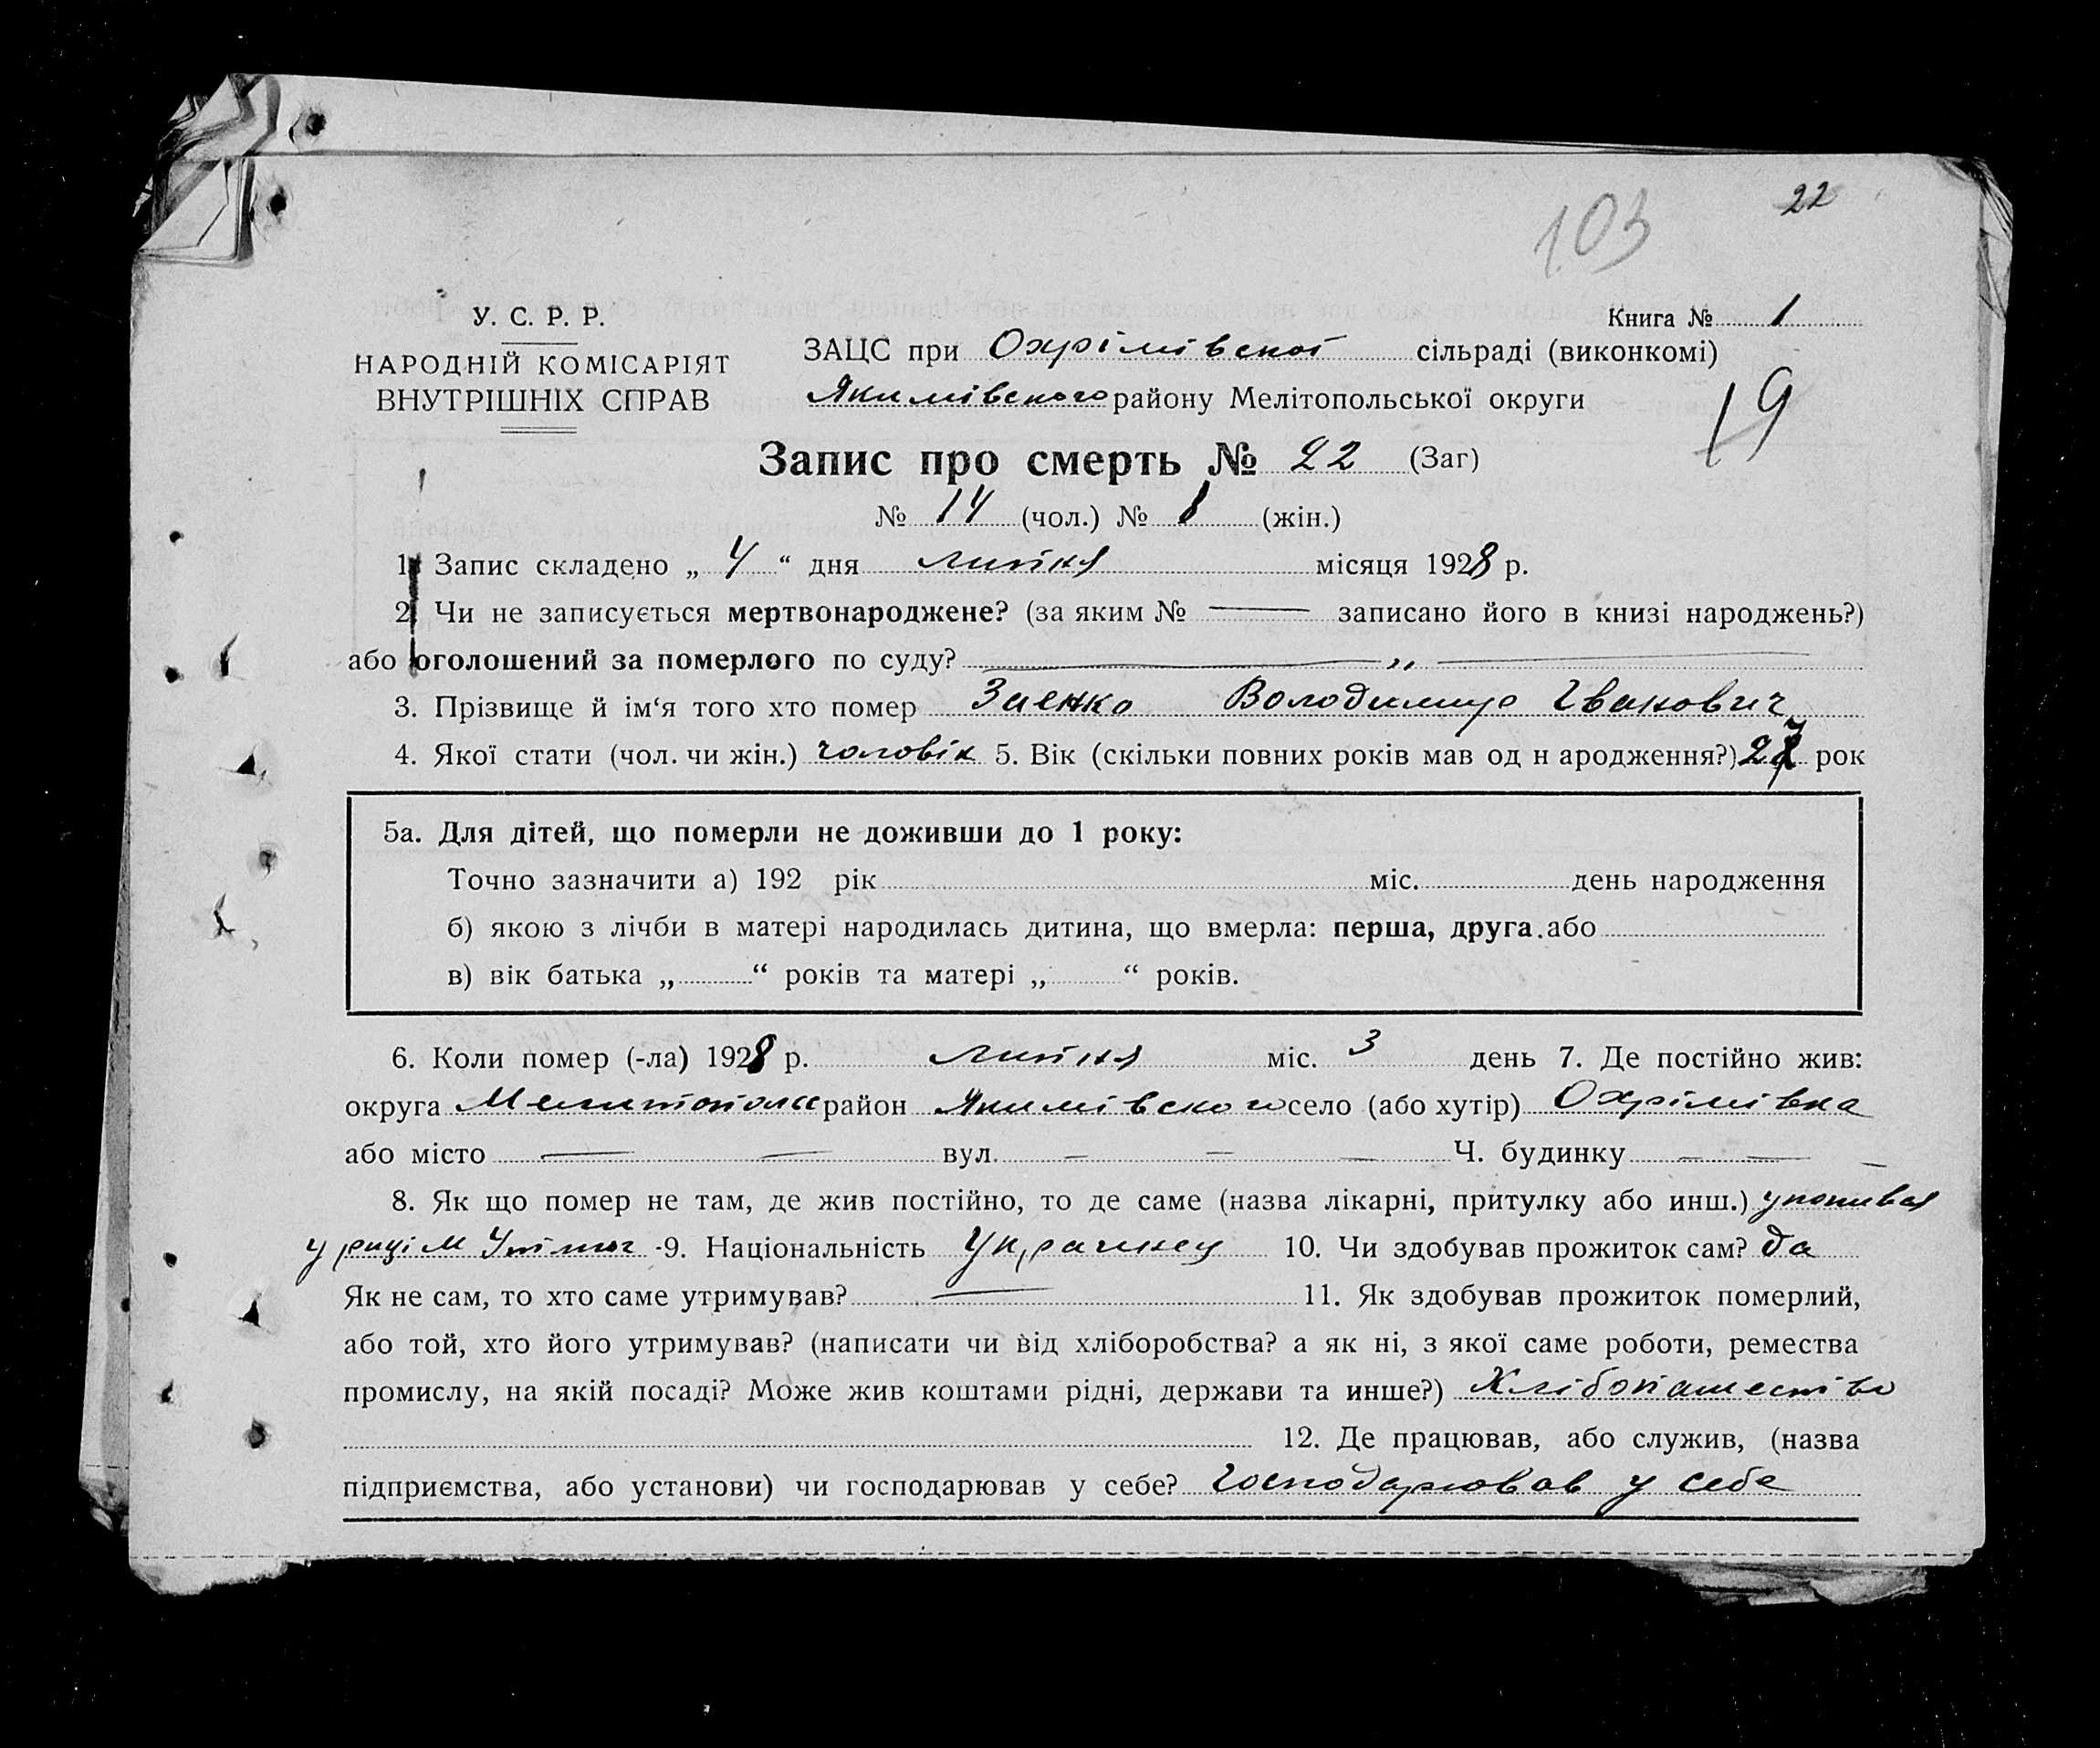 22
103
У. С. Р. Р.
НАРОДНІЙ КОМІСАРІЯТ
ВНУТРІШНІХ СПРАВ
Книга № 1
ЗАЦС при Охрімівской сільраді (виконкомі)
Якимівского району Мелітопольської округи
19
Запис про смерть № 22 (Заг)
№ 14 (чол.) № 8 (жін.)
1. Запис складено „ 4 “ дня липня місяця 1928 р.
2. Чи не записується мертвонароджене? (за яким № — записано його в книзі народжень?)
або оголошений за померлого по суду? — „ —
3. Прізвище й ім‘я того хто помер Заенко Володимир Іванович
4. Якої стати (чол. чи жін.) чоловік 5. Вік (скільки повних років мав од н ародження?) 27 рок
5а. Для дітей, що померли не доживши до 1 року:
Точно зазначити а) 192 рік міс. день народження
б) якою з лічби в матері народилась дитина, що вмерла: перша, друга.або
в) вік батька „ “ років та матері „ “ років.
6. Коли помер (-ла) 1928 р. липня міс. 3 день 7. Де постійно жив:
округа Мелитопольс район Якимівского село (або хутір) Охрімівка
або місто — — вул. — — — Ч. будинку — — —
8. Як що помер не там, де жив постійно, то де саме (назва лікарні, притулку або инш.)
у 9. Національність Украинец 10. Чи здобував прожиток сам? да
Як не сам, то хто саме утримував? — 11. Як здобував прожиток померлий,
або той, хто його утримував? (написати чи від хліборобства? а як ні, з якої саме роботи, ремества
промислу, на якій посаді? Може жив коштами рідні, держави та инше?) Хлібопашество
12. Де працював, або служив, (назва
підприємства, або установи) чи господарював у себе? Господарював у себе